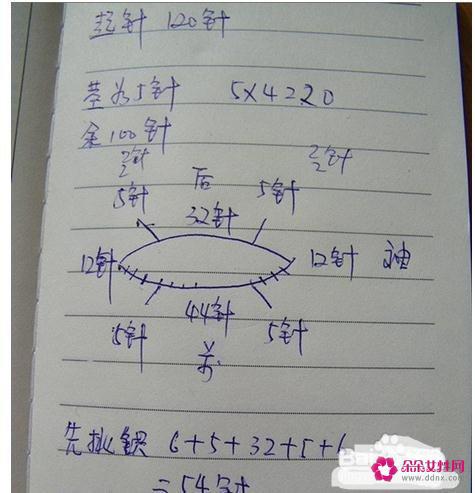 起针 120针
茎为5针 5×4=20
余100针
2针 2针
2 2
5针 后 5针
32针
12针 12针 袖
44针
5针 5针
前
先挑织 6+5+32+5+6
=54针
朵朵女性网
www.ddnx.com